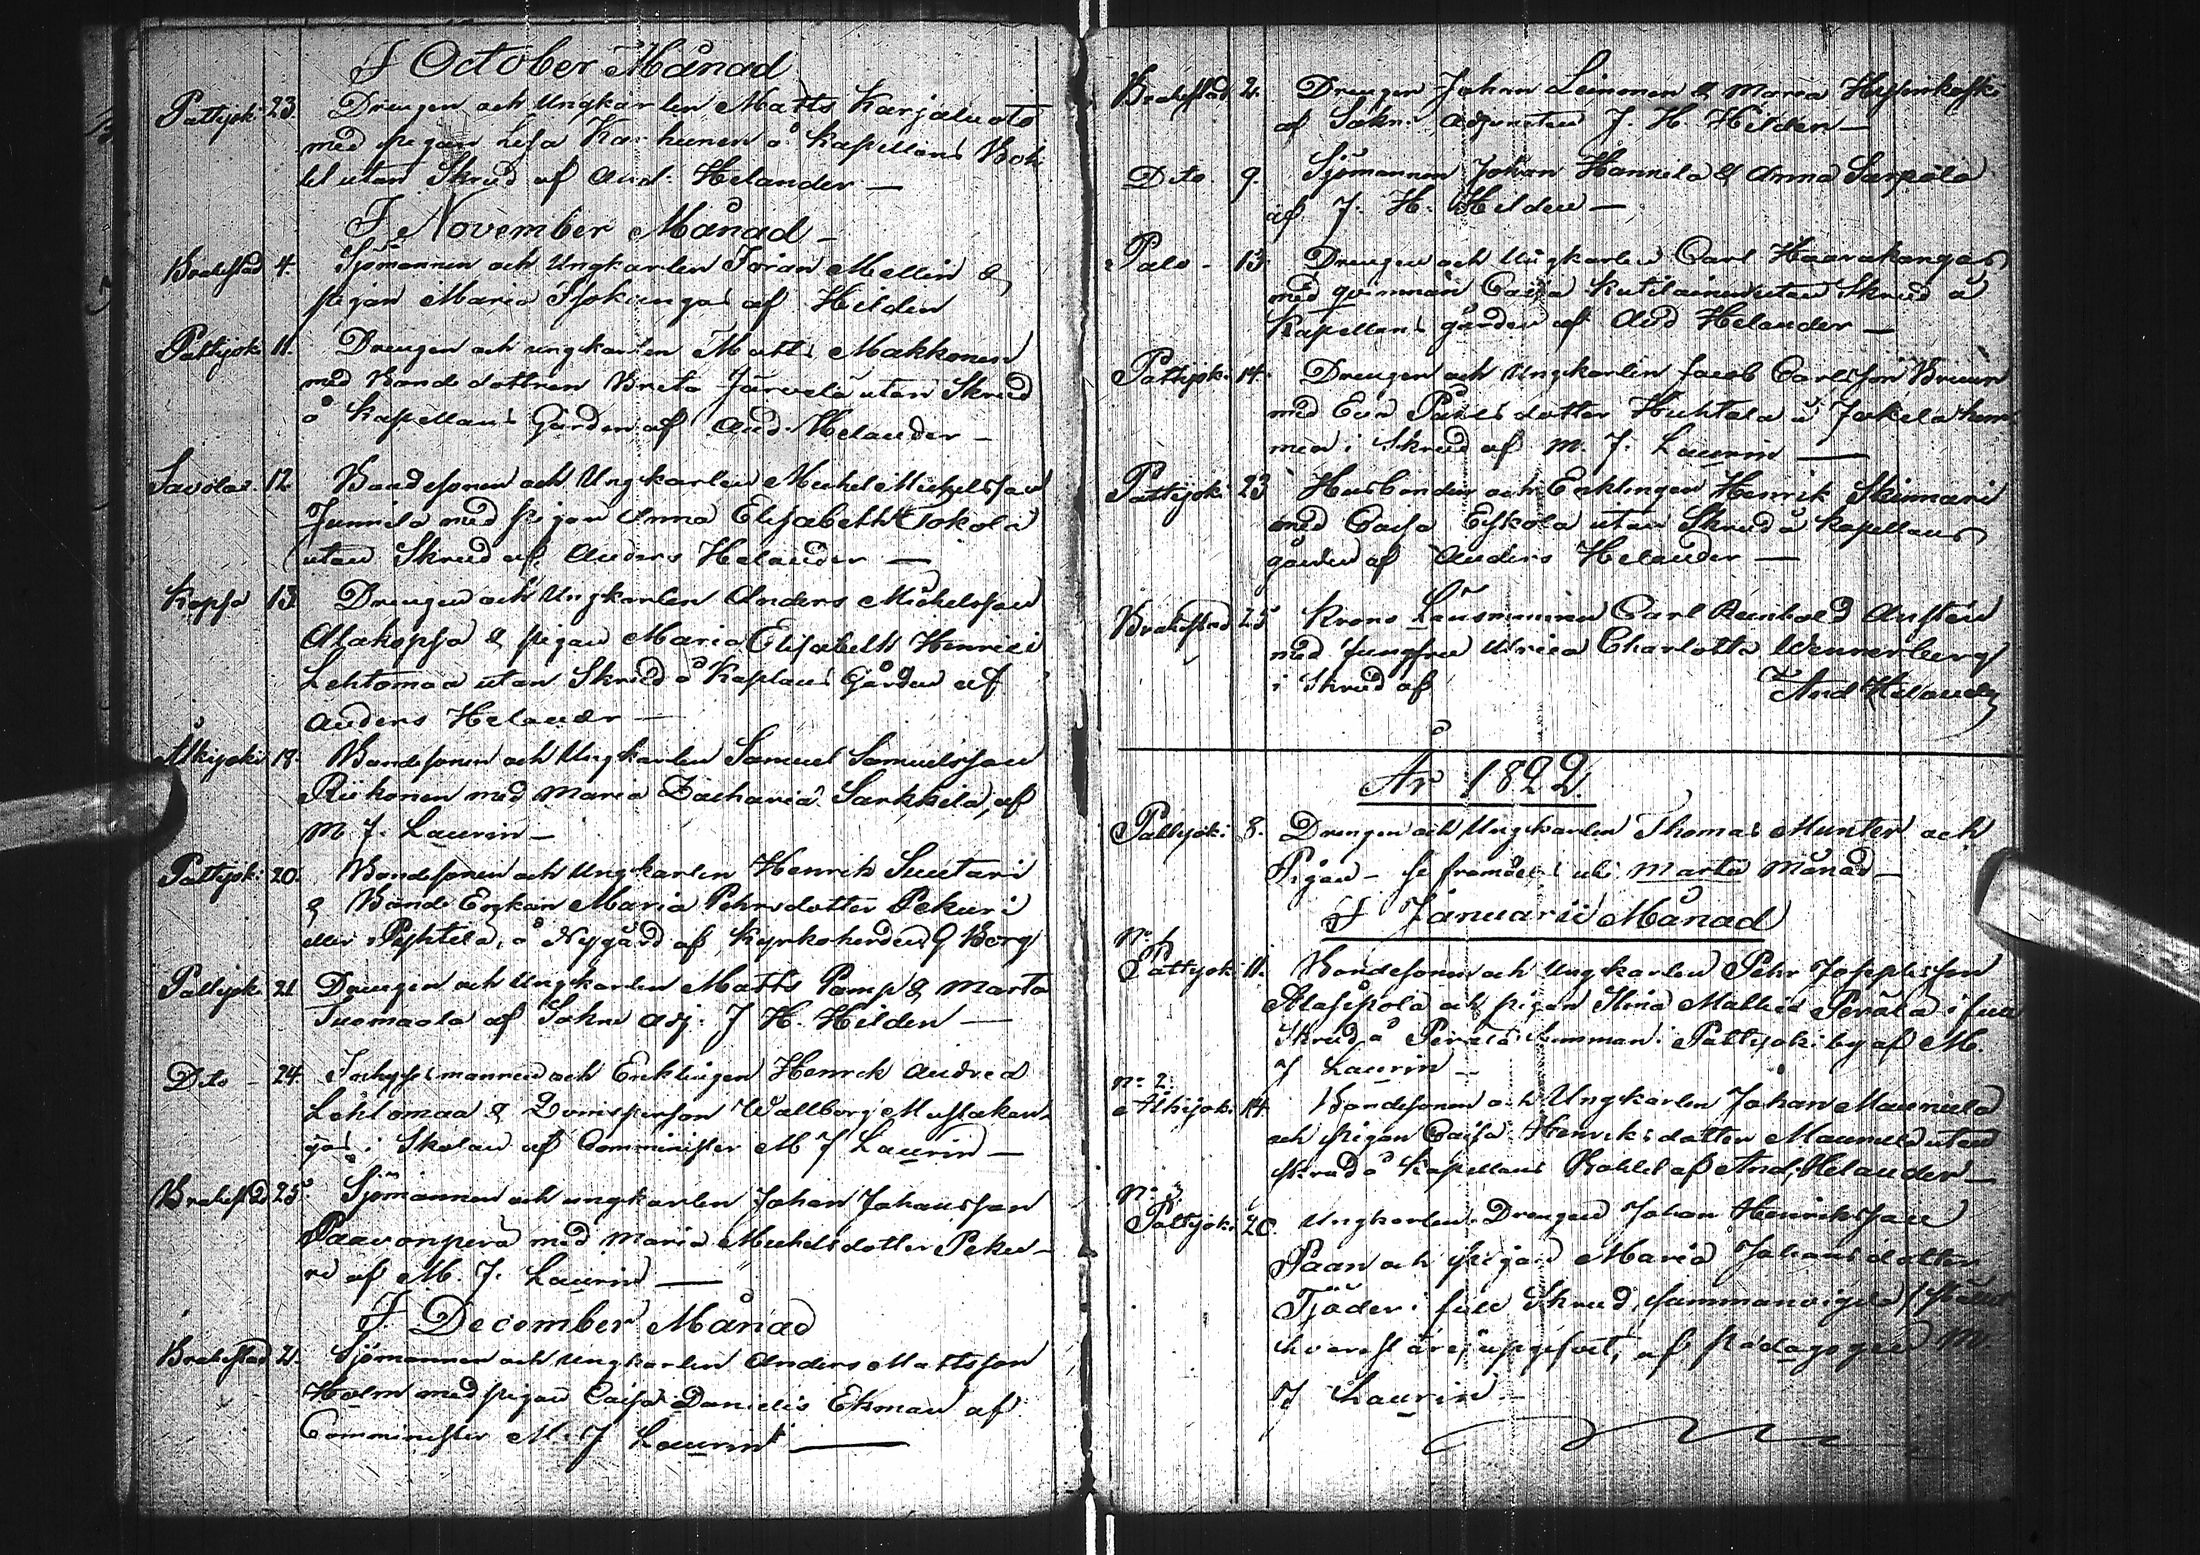 I October Månad
Pattijoki 23. Drengen och Ungkarlen Matts Karjaluoto
med pigan Lisa Karhunen å Kapellans Bohl
let utan Skrud af And: Helander —
I November Månad —
Brahestad 4. Sjömannen och Ungkarlen Jöran Mellin &
pigan Maria af Hilden
Pattijok. 11. Drengen och ungkarlen Matts Makkonen
med Bonde dottren Breta Järvelä utan Skrud
å Kapellans Gården af And. Helander —
Savolax. 12. Bondesonen och Ungkarlen Michel Michelsson
Junnila med pigan Anna Elisabeth Tokola
utan Skrud af Anders Helander —
Kopsa 13. Drengen och Ungkarlen Anders Michelsson
Alakopsa & pigan Maria Elisabeth Henrici
Lehtomaa utan Skrud å Kaplans Gården af
Anders Helander —
Olkijoki 18. Bondesonen och Ungkarlen Samuel Samuelsson
Riikonen med Maria Zachariæ Sarkkila, af
M. J. Laurin —
Pattijok: 20. Bondesonen och Ungkarlen Henrik Suutari
& Bonde Enkan Maria Pehrsdotter Pekuri
eller Pyhtilä, å Nygård af Kyrkoherden G Borg
Pattijok: 21. Drengen och Ungkarlen Matts Pamp & Marta
Tuomaala af Sokne Adj. J H. Hilden —
Dito — 24. Inhyses mannen och Enklingen Henrck Andreæ
Lehtomaa & Qvinsperson Wallborg Mustakan-
gas i Skolan af Comminister M J Laurin —
Brahestad 25. Sjömannen och ungkarlen Johan Johansson
Paavonperä med Maria Michelsdotter Peku-
ri af M. J. Laurin —
I December Månad
Brahestad 2. Sjömannen och Ungkarlen Anders Mattsson
Holm med pigan Caisa Danielis Ekman af
Comminister M. J Laurin —
Brahestad 2. Drengen Johan Leinonen & Maria
af Sokn: Adjuncten J. H. Hilden —
Dito 9. Sjömannen Johan Hannila & Anna Sarpola
af J. H. Hilden —
Palo — 13. Drengen och Ungkarlen Carl Haarakangas
med qvinnan Caisa Kutilainen utan Skrud å
Kapellans gården af And Helander —
Pattijok: 14. Drengen och Ungkarlen Jacob Carlsson Bruun
med Eva Påhlsdotter Huhtala å Jokela hem
men i Skrud af M. J. Laurin —
Pattijoki 23 Husbonden och Enklingen Henrik Skinnari
med Caisa Eskola utan Skrud å Kapellans
gården af Anders Helander —
Brahestad 25 Krono Länsmannen Carl Reinhold Austén
med Jungfru Ulrica Charlotta Wennerberg
i Skrud af And Helander
År 1822.
Pattijoki 8. Drengen och Ungkarlen Thomas Munter och
Pigan — se framdeles uti Martii Månad —
I Januarii Månad
No 1.
Pattijok: 11. Bondesonen och Ungkarlen Pehr Josephsson
Alasipola och pigan Stina Matthiæ Perälä i full
Skrud å Perälä hemman i Pattijoki by af M.
J Laurin —
No 2.
Olkijoki 14. Bondesonen och Ungkarlen Johan Maunula
och pigan Caisa Henriksdotter Maunula utan
skrud å Kapellans Bohlet af And. Helander —
No 3.
Pattijok: 20. Ungkarlen Drengen Johan Henriksson
Paan och pigan Maria Johansdotter
Tjäder i full Skrud, sammanvigde
hvarest är ej upgifvet, af pædagogen M
J Laurin —